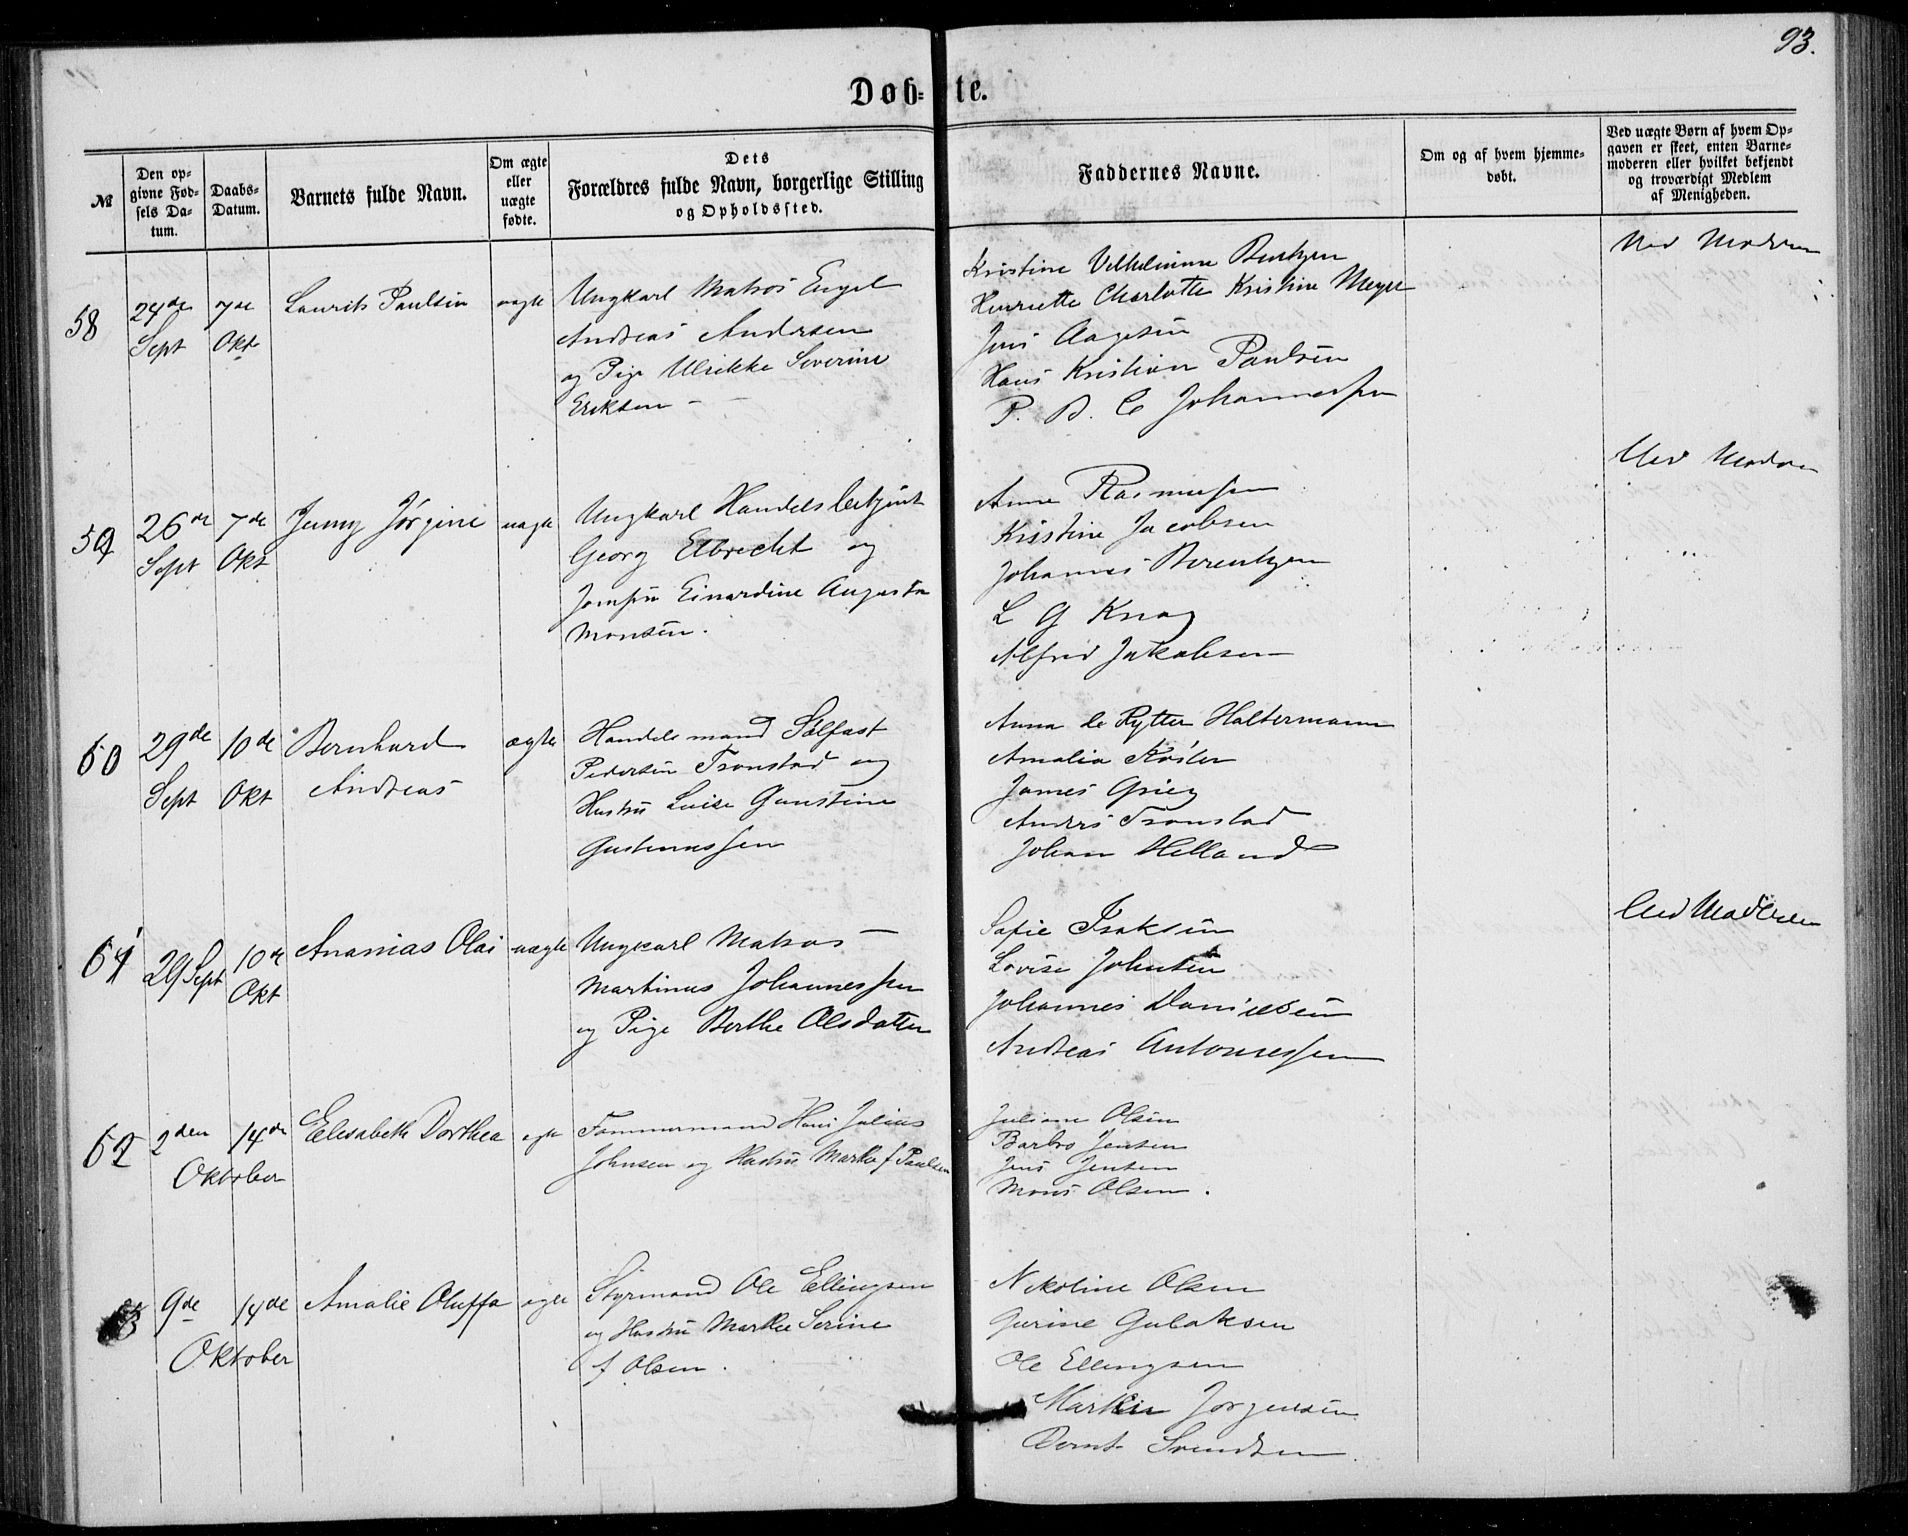 93.
Døb= te.
№
Den op=
givne Fød=
sels Da=
tum.
Daabs=
Datum.
Barnets fulde Navn.
Om ægte
eller
uægte
fødte.
Dets
Forældres fulde Navn, borgerlige Stilling
og Opholdssted.
Faddernes Navne.
Om og af hvem hjemme=
døbt.
Ved uægte Børn af hvem Op=
gaven er skeet, enten Barne=
moderen eller hvilket bekjendt
og troværdigt Medlem
af Menigheden.
58
24de
Sept
7de
Okt
Laurits Paulsin
uægte
Ungkarl Matros Engel
Andreas Andersen
og Pige Ulrikke Severine
Eriksen -
Kristine Vilhelmine
Henriette Charlotte Kristine Meyer
Jens Aagesen
Hans Kristian Paulsen
P. B. C Johannessen
Ved Moderen
59
26de
Sept
7de
Okt
Jenny Jørgine
uægte
Ungkarl Handelsbetjent
Georg Elbrecht og
Jomfru Einardine Augusta
Monsen.
Anna Rasmussen
Kristine Jacobsen
Johannes Berentzen
L G Knag
Alfred Jakobsen
Ved Moderen
60
29de
Sept
10de
Okt
Bernhard
Andreas
ægte
Handelsmand Solfast
Pedersen Tronstad og
Hustru Lovise Gunstine
Anna de Rytter Haltermann
Amalia
James Grieg
Anders Tronstad
Johan Helland
61
29 Sept
10de
Okt
Ananias Olai
uægte
Ungkarl Matros
Martinus Johannessen
og Pige Berthe Olsdatter
Sofie Isaksen
Lovise Johnsen
Johannes Danielsen
Andreas Antonessen
Ved Moderen
62
2den
Oktober
14de
Elisabeth Dorthea
egte
Tømmermand Hans Julius
Johnsen og Hustru Marthe f Paulsen
Juliane Olsen
Barbro Jensen
Jens Jensen
Mons Olsen.
63
9de
Oktober
14de
Amalie Oluffa
egte
Styrmand Ole Ellingsen
og Hustru Marthe Serine
f Olsen.
Nikoline Olsen
Gurine Gulaksen
Ole Ellingsen
Martin Jørgensen
Bernt Svendsen